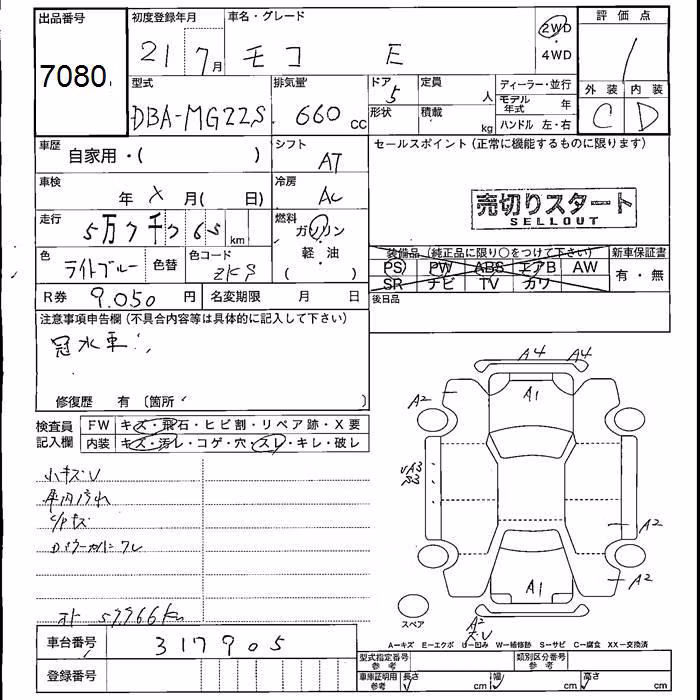 出品番号
7080
初度登録年月
21 7月
車名・グレード
モコ E
2WD
・
4WD
評価点
1
外装 内装
C D
型式
DBA-MG22S
排気量
660 cc
ドア
5
形状
定員
人
積載
kg
ディーラー・並行
モデル年式 年
ハンドル 左・右
車歴
自家用・( )
シフト
AT
車検
年 X 月( 日)
冷房
AC
走行
km
燃料
ガソリン
軽・油
( )
色
ライトブルー
色替
色コード
ZKS
R券 9.050 円
名変期限 月 日
セールスポイント(正常に機能するものに限ります)
売切りスタート
SELLOUT
装備品(純正品に限り○をつけて下さい)
PS PW ABS エアB AW
SR ナビ TV カワ
新車保証書
有・無
後日品
注意事項申告欄(不具合内容等は具体的に記入して下さい)
冠水車
修復歴 有 〔箇所 〕
検査員
記入欄
FW キズ・飛石・ヒビ割・リペア跡・X要
内装 キズ・汚レ・コゲ・穴・スレ・キレ・破レ
小キズV
車内汚れ
57966km
A4 A4
A1
A2
A3
A2
A2
A1
A2
スペア
A－キズ E－エクボ U－凹み W－補修跡 S－サビ C－腐食 XX－交換済
車台番号
317905
登録番号
型式指定番号
参考
類別区分番号
参考
車庫証明用
参考
長さ cm
幅 cm
高さ cm